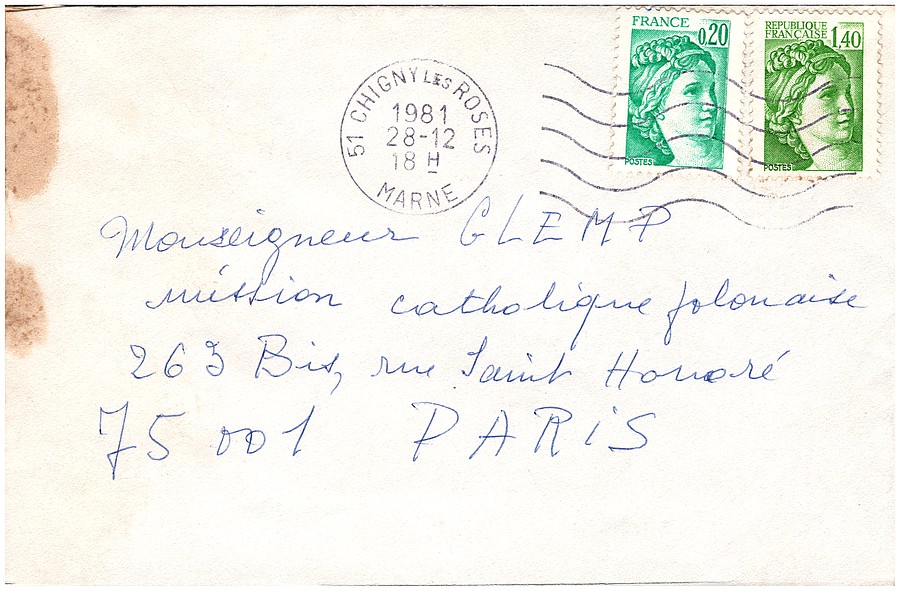 FRANCE
0,20
POSTES
REPUBLIQUE
FRANÇAISE
1,40
POSTES
51 CHIGNY LES ROSES
1981
28-12
18 H
MARNE
Monseigneur GLEMP
mission catholique polonaise
263 Bis, rue Saint Honoré
75 001 PARIS